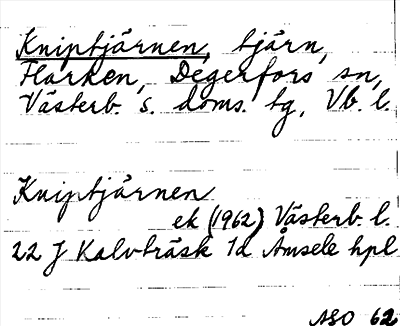 Kniptjärnen, tjärn,
Flarken, Degerfors sn,
Västerb. s. doms. tg, Vb. l.
Kniptjärnen
ek (1962) Västerb. l.
22 J Kalvträsk 1d Åmsele hpl
ASO 62